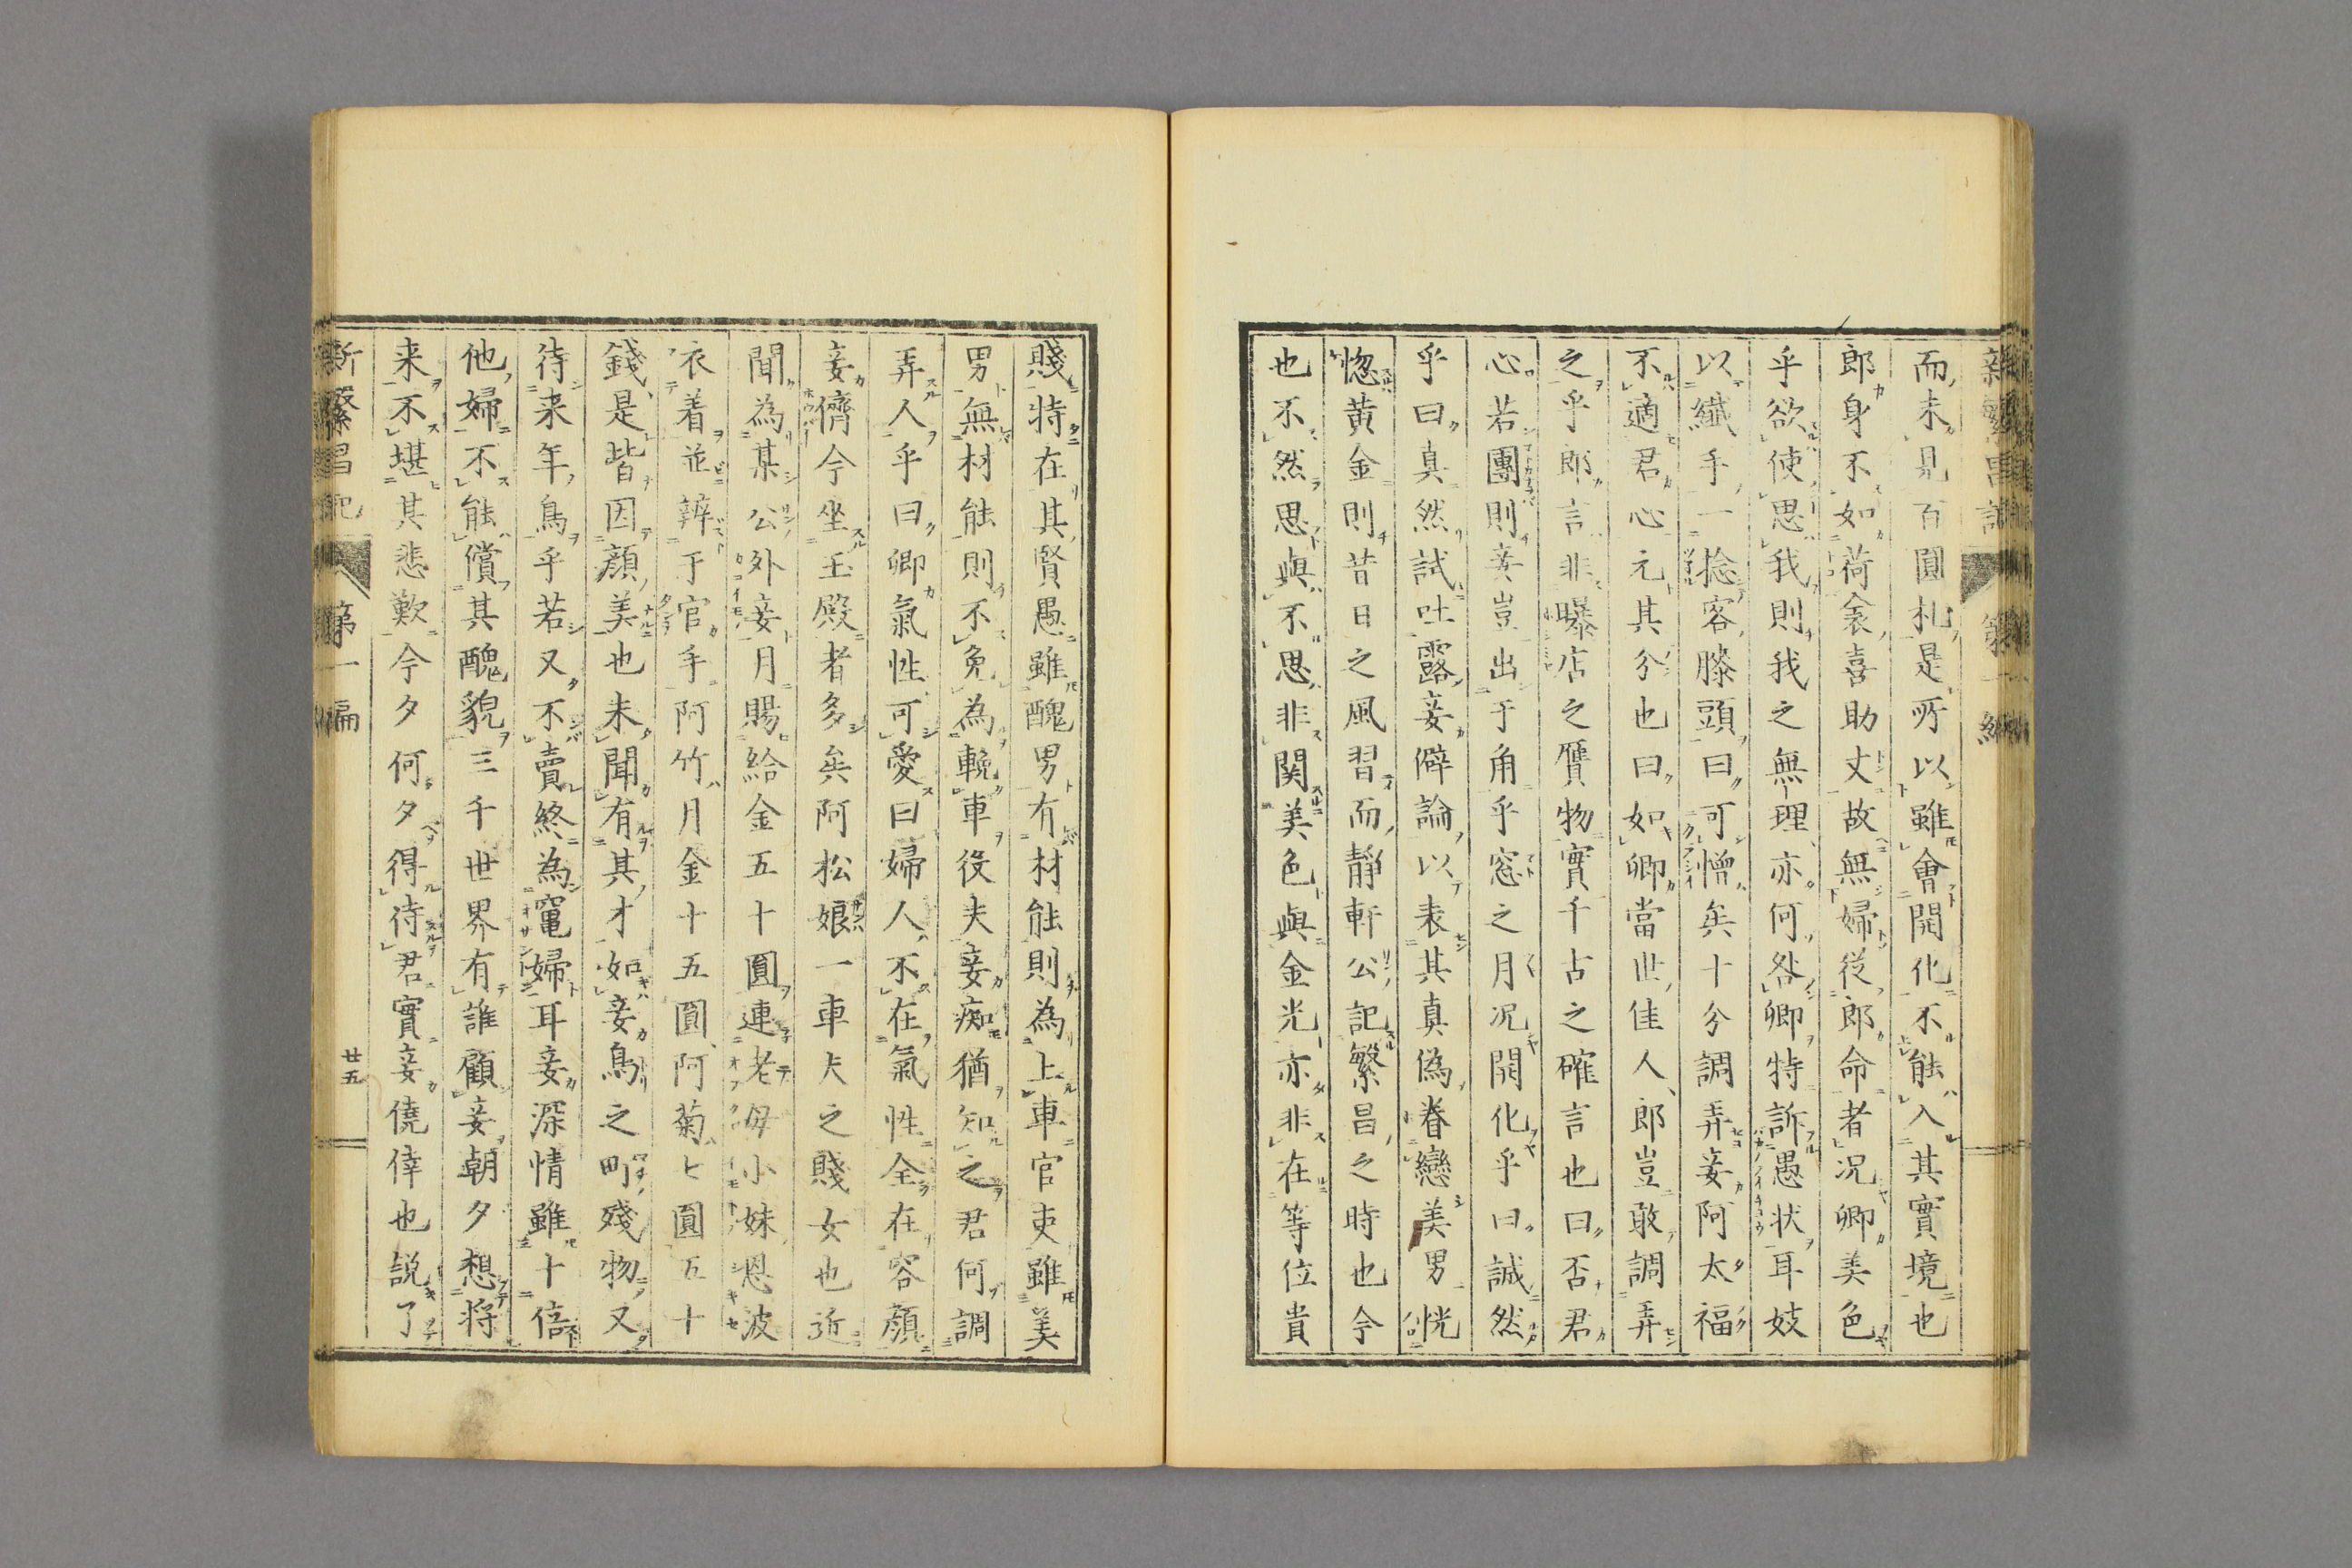 新繁昌記 第一編
而未見百圓札是所以雖會開化不能入其實境也
郎身不如荷衾喜助丈故無婦從郎命者況卿美色
乎欲使思我則我之無理亦何咎卿特訴愚状耳妓
以纎手一捻客膝頭曰可憎矣十分調弄妾阿太福
不適君心元其分也曰如卿當世佳人郎豈敢調弄
之乎郎言非曝店之贋物實千古之確言也曰否君
心若團則妾豈出于角乎窓之月況開化乎曰誠然
乎曰真然試吐露妾僻論以表其真偽眷戀美男恍
惚黄金則昔日之風習而靜軒公記繁昌之時也今
也不然思與不思非関美色與金光亦非在等位貴
賤特在其賢愚雖醜男有材能則為上車官吏雖美
男無材能則不免為輓車役夫妾痴猶知之君何調
弄人乎曰卿氣性可愛曰婦人不在氣性全在容顔
妾儕今坐玉殿者多矣阿松娘一車夫之賤女也近
聞為某公外妾月賜給金五十圓連老母小妹恩波
衣着並辨于官手阿竹月金十五圓阿菊七圓五十
錢是皆因顔美也未聞有其才如妾鳥之町殘物又
待来年鳥乎若又不賣終為竃婦耳妾深情雖十倍
他婦不能償其醜貌三千世界有誰顧妾朝夕想將
来不堪其悲歎今夕何夕得待君實妾僥倖也説了
新繁昌記 第一編 廿五